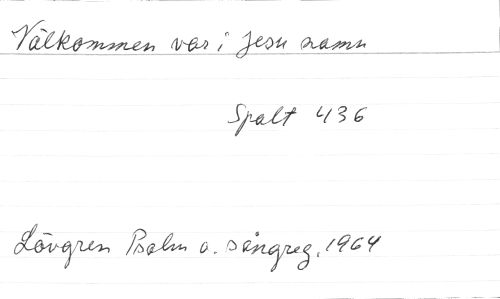 Välkommen var i Jesu namn
Spalt 436
Lövgren Psalm o. sångreg. 1964